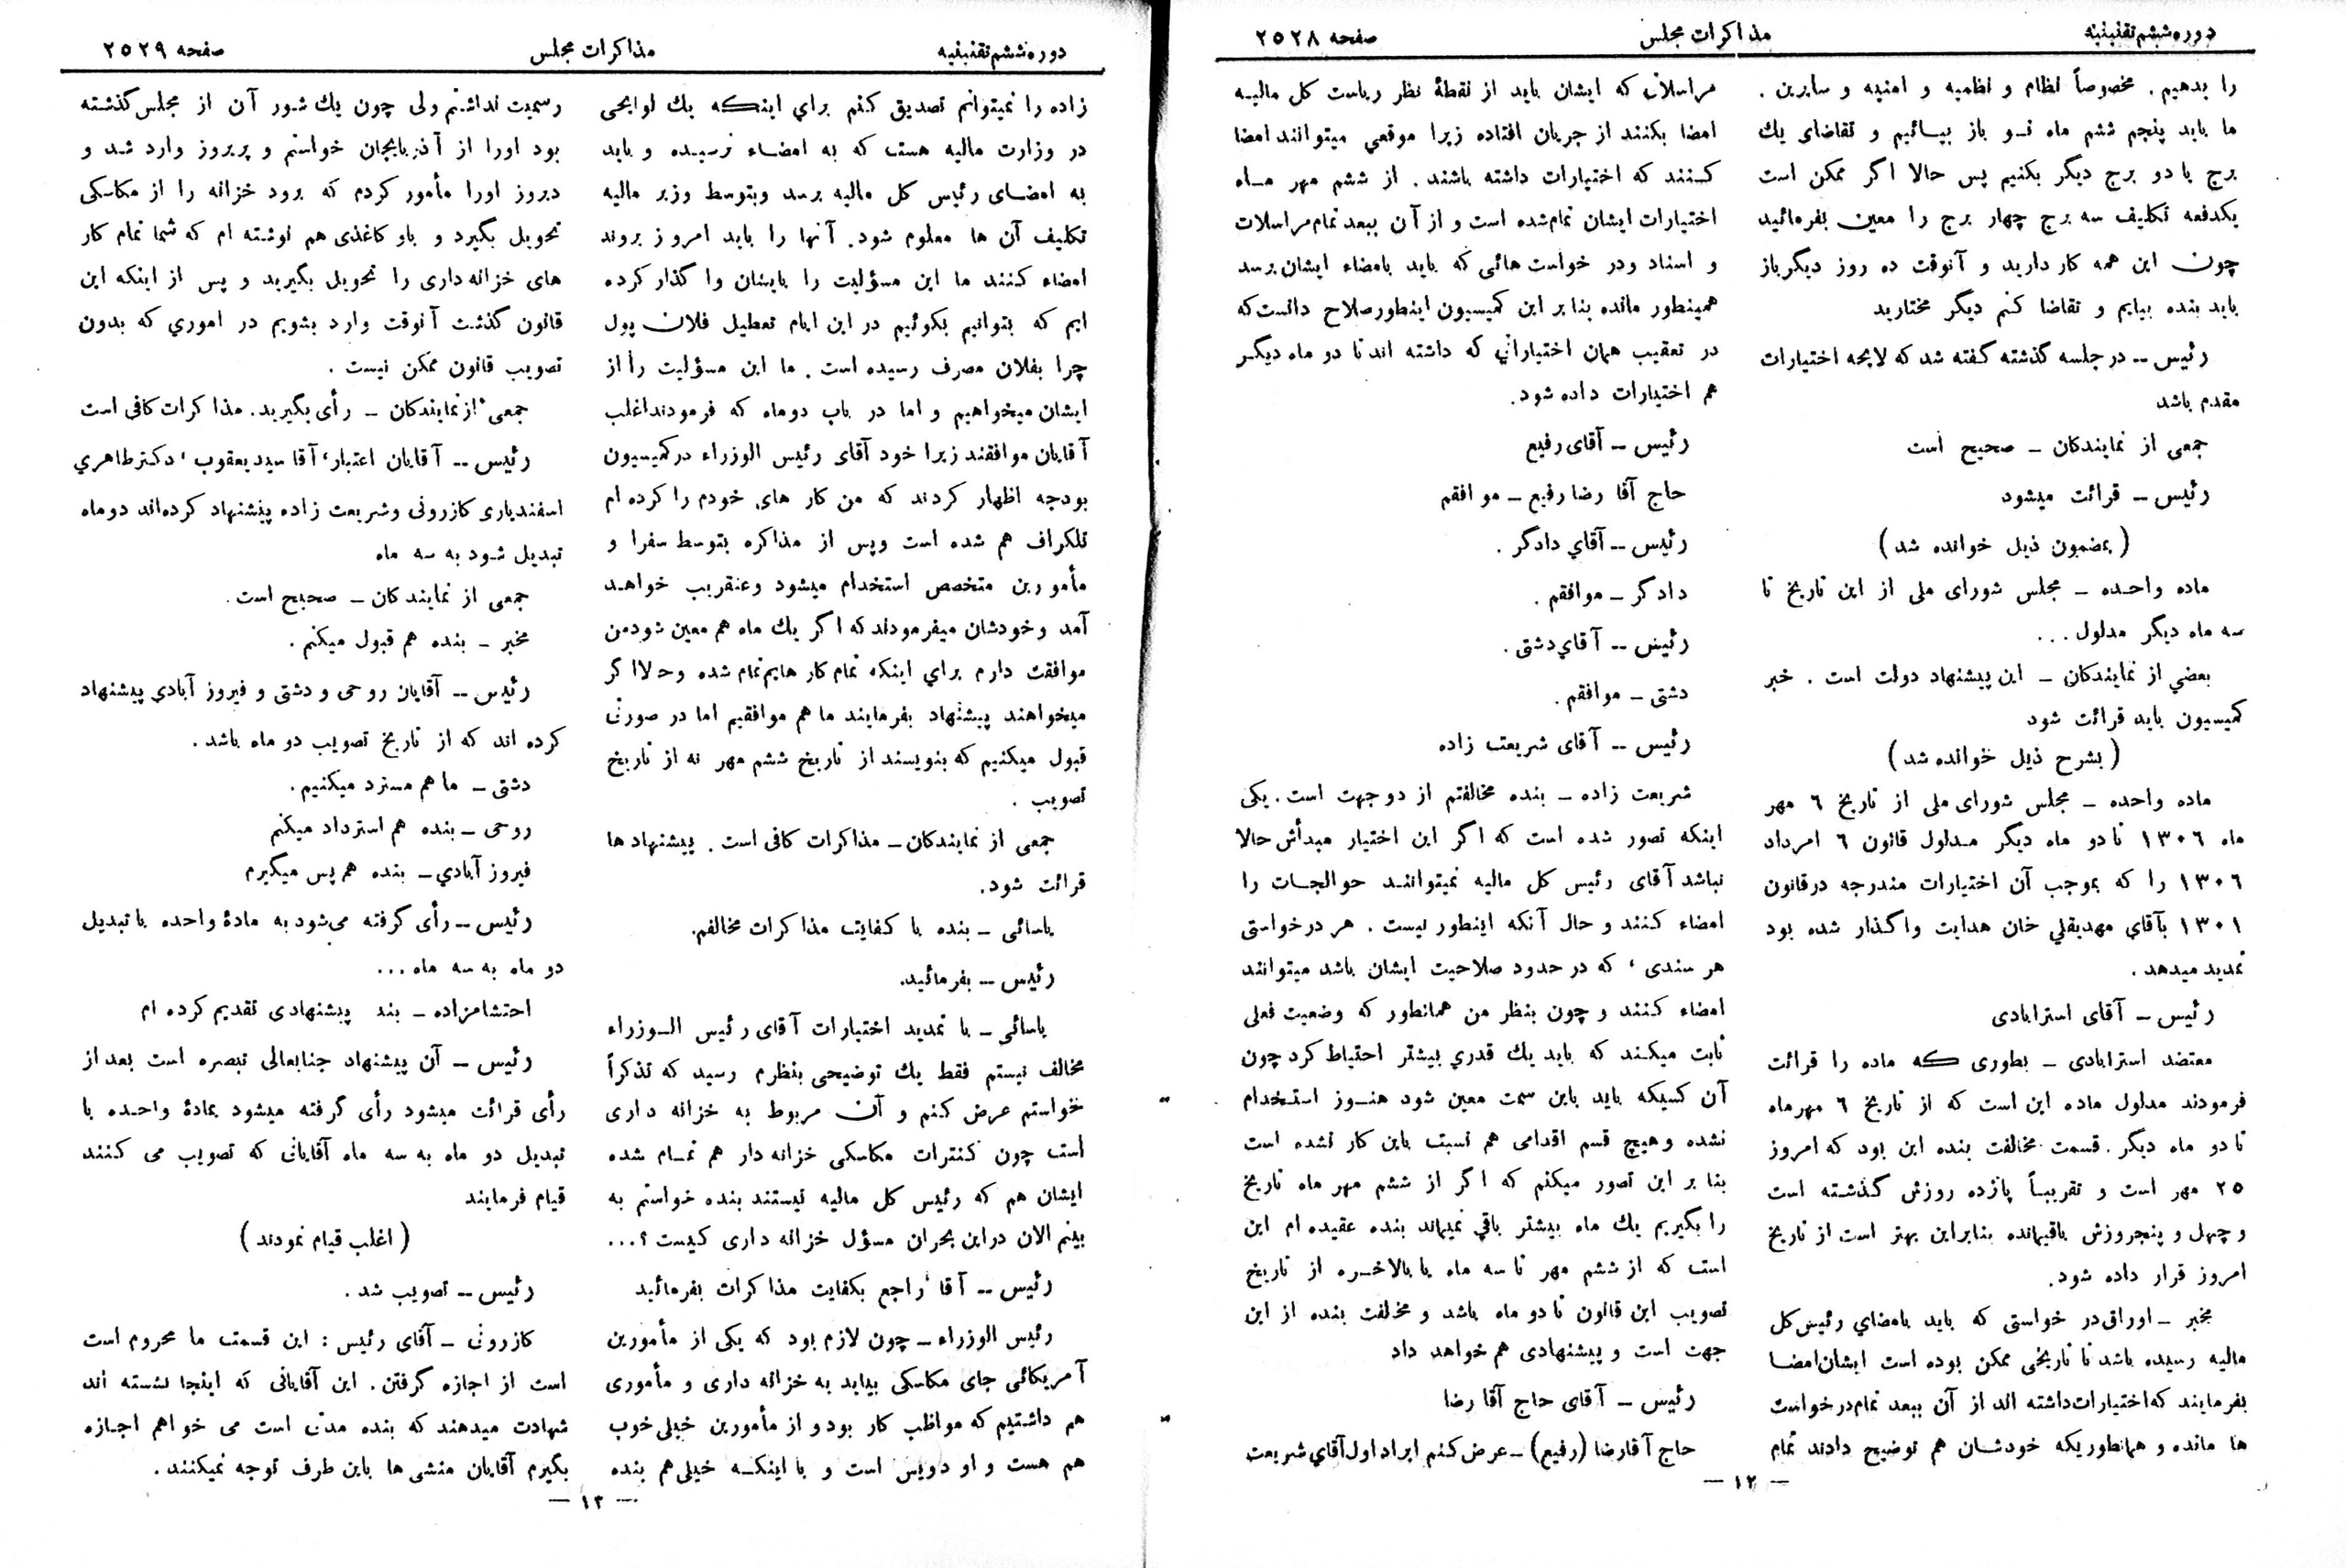 دوره ششم تقنینیه
مذاکرات مجلس
صفحه ۲۵۲۸
را بدهیم . مخصوصاً نظام و نظمیه و امنیه و سایرین .
ما باید پنجم ششم ماه نو باز بیائیم و تقاضای یك
برج یا دو برج دیگر بکنیم پس حالا اگر ممکن است
یکدفعه تکلیف سه برج چهار برج را معین بفرمائید
چون این همه کار دارید و آنوقت ده روز دیگر باز
باید بنده بیایم و تقاضا کنم دیگر مختارید
رئیس -- در جلسه گذشته گفته شد که لایحه اختیارات
مقدم باشد
جمعی از نمایندکان - صحیح است
رئیس - قرائت میشود
( بمضمون ذیل خوانده شد )
ماده واحده - مجلس شورای ملی از این تاریخ تا
سه ماه دیگر مدلول ...
بعضی از نمایندکان - این پیشنهاد دولت است . خبر
کمیسیون باید قرائت شود
( بشرح ذیل خوانده شد )
ماده واحده - مجلس شورای ملی از تاریخ ٦ مهر
ماه ۱۳۰٦ تا دو ماه دیگر مدلول قانون ٦ امرداد
۱۳۰٦ را که بموجب آن اختیارات مندرجه در قانون
۱۳۰۱ بآقای مهدیقلی خان هدایت واگذار شده بود
تمدید میدهد .
رئیس - آقای استرابادی
معتضد استرابادی - بطوری که ماده را قرائت
فرمودند مدلول ماده این است که از تاریخ ٦ مهرماه
تا دو ماه دیگر . قسمت مخالفت بنده این بود که امروز
۲٥ مهر است و تقریباً پازده روزش گذشته است
و چهل و پنجروزش باقیمانده بنابراین بهتر است از تاریخ
امروز قرار داده شود.
مخبر - اوراق در خواستی که باید بامضای رئیس کل
مالیه رسیده باشد تا تاریخی ممکن بوده است ایشان امضا
بفرمایند که اختیارات داشته اند از آن ببعد تمام درخواست
ها مانده و همانطوریکه خودشان هم توضیح دادند تمام
مراسلاتی که ایشان باید از نقطهٔ نظر ریاست کل مالیه
امضا بکنند از جریان افتاده زیرا موقعی میتوانند امضا
کنند که اختیارات داشته باشند . از ششم مهر ماه
اختیارات ایشان تمام شده است و از آن ببعد تمام مراسلات
و اسناد ودر خواست هائی که باید بامضاء ایشان برسد
همینطور مانده بنا بر این کمیسیون اینطور صلاح دانست که
در تعقیب همان اختیاراتی که داشته اند تا دو ماه دیگر
هم اختیارات داده شود.
رئیس - آقای رفیع
حاج آقا رضا رفیع - موافقم
رئیس -- آقای دادگر .
دادگر - موافقم .
رئیس -- آقای دشتی .
دشتی - موافقم .
رئیس -- آقای شریعت زاده
شریعت زاده - بنده مخالفتم از دو جهت است . یکی
اینکه تصور شده است که اگر این اختیار مبدأش حالا
نباشد آقای رئیس کل مالیه نمیتوانند حوالجات را
امضاء کنند و حال آنکه اینطور نیست . هر درخواستی
هر سندی ، که در حدود صلاحیت ایشان باشد میتوانند
امضاء کنند و چون بنظر من همانطور که وضعیت فعلی
ثابت میکند که باید یك قدری بیشتر احتیاط کرد چون
آن کسیکه باید باین سمت معین شود هنوز استخدام
نشده و هیچ قسم اقدامی هم نسبت باین کار نشده است
بنا بر این تصور میکنم که اگر از ششم مهر ماه تاریخ
را بگیریم یك ماه بیشتر باقی نمیماند بنده عقیده ام این
است که از ششم مهر تا سه ماه یا بالاخره از تاریخ
تصویب این قانون تا دو ماه باشد و مخالفت بنده از این
جهت است و پیشنهادی هم خواهد داد
رئیس - آقای حاج آقا رضا
حاج آقارضا (رفیع) - عرض کنم ایراد اول آقای شریعت
— ۱۲ —
دوره ششم تقنینیه
مذاکرات مجلس
صفحه ۲۵۲۹
زاده را نمیتوانم تصدیق کنم برای اینکه یك لوایحی
در وزارت مالیه هست که به امضاء نرسیده و باید
به امضای رئیس کل مالیه برسد وبتوسط وزیر مالیه
تکلیف آن ها معلوم شود. آنها را باید امروز بروند
امضاء کنند ما این مسؤلیت را بایشان واگذار کرده
ایم که بتوانیم بگوئیم در این ایام تعطیل فلان پول
چرا بفلان مصرف رسیده است . ما این مسؤلیت را از
ایشان میخواهیم و اما در باب دوماه که فرمودند اغلب
آقایان موافقند زیرا خود آقای رئیس الوزراء در کمیسیون
بودجه اظهار کردند که من کار های خودم را کرده ام
تلگراف هم شده است وپس از مذاکره بتوسط سفرا و
مأمورین متخصص استخدام میشود وعنقریب خواهد
آمد و خودشان میفرمودند که اگر یك ماه هم معین شود من
موافقت دارم برای اینکه تمام کار هایم تمام شده و حالا اگر
میخواهند پیشنهاد بفرمایند ما هم موافقیم اما در صورتی
قبول میکنیم که بنویسند از تاریخ ششم مهر نه از تاریخ
تصویب .
جمعی از نمایندکان - مذاکرات کافی است . پیشنهاد ها
قرائت شود.
یاسائی - بنده با کفایت مذاکرات مخالفم.
رئیس -- بفرمائید.
یاسائی - با تمدید اختیارات آقای رئیس الوزراء
مخالف نیستم فقط یك توضیحی بنظرم رسید که تذکراً
خواستم عرض کنم و آن مربوط به خزانه داری
است چون کنترات مکاسکی خزانه دار هم تمام شده
ایشان هم که رئیس کل مالیه نیستند بنده خواستم به
بینم الان دراین بحران مسؤل خزانه داری کیست ؟...
رئیس -- آقا راجع بکفایت مذاکرات بفرمائید
رئیس الوزراء - چون لازم بود که یکی از مأمورین
آمریکائی جای مکاسکی بیاید به خزانه داری و مأموری
هم داشتیم که مواظب کار بود و از مأمورین خیلی خوب
هم هست و او دویس است و با اینکه خیلی هم بنده
رسمیت نداشتم ولی چون یك شور آن از مجلس گذشته
بود اورا از آذربایجان خواستم و پریروز وارد شد و
دیروز اورا مأمور کردم که برود خزانه را از مکاسکی
تحویل بگیرد و باو کاغذی هم نوشته ام که شما تمام کار
های خزانه داری را تحویل بگیرید و پس از اینکه این
قانون گذشت آنوقت وارد بشویم در اموری که بدون
تصویب قانون ممکن نیست .
جمعی از نمایندکان - رأی بگیرید. مذاکرات کافی است
رئیس -- آقایان اعتبار، آقا سید یعقوب ، دکتر طاهری
اسفندیاری کازرونی وشریعت زاده پیشنهاد کرده‌اند دوماه
تبدیل شود به سه ماه
جمعی از نمایندکان - صحیح است .
مخبر - بنده هم قبول میکنم .
رئیس -- آقایان روحی و دشتی و فیروز آبادی پیشنهاد
کرده اند که از تاریخ تصویب دو ماه باشد .
دشتی - ما هم مسترد میکنیم .
روحی - بنده هم استرداد میکنم
فیروز آبادی - بنده هم پس میگیرم
رئیس -- رأی گرفته می‌شود به مادهٔ واحده با تبدیل
دو ماه به سه ماه ...
احتشامزاده - بند پیشنهادی تقدیم کرده ام
رئیس - آن پیشنهاد جنابعالی تبصره است بعد از
رأی قرائت میشود رأی گرفته میشود بمادهٔ واحده با
تبدیل دو ماه به سه ماه آقایانی که تصویب می کنند
قیام فرمایند
( اغلب قیام نمودند )
رئیس -- تصویب شد .
کازرونی - آقای رئیس : این قسمت ما محروم است
است از اجازه گرفتن . این آقایانی که اینجا نشسته اند
شهادت میدهند که بنده مدتی است می خواهم اجازه
بگیرم آقایان منشی ها باین طرف توجه نمیکنند .
— ۱۳ —